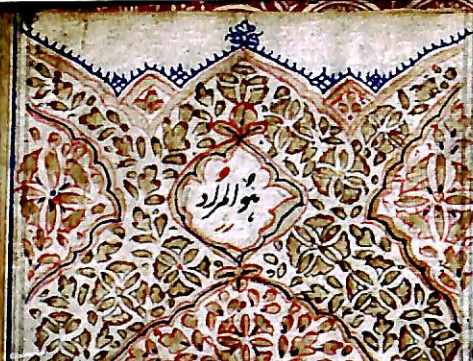 هو المراد